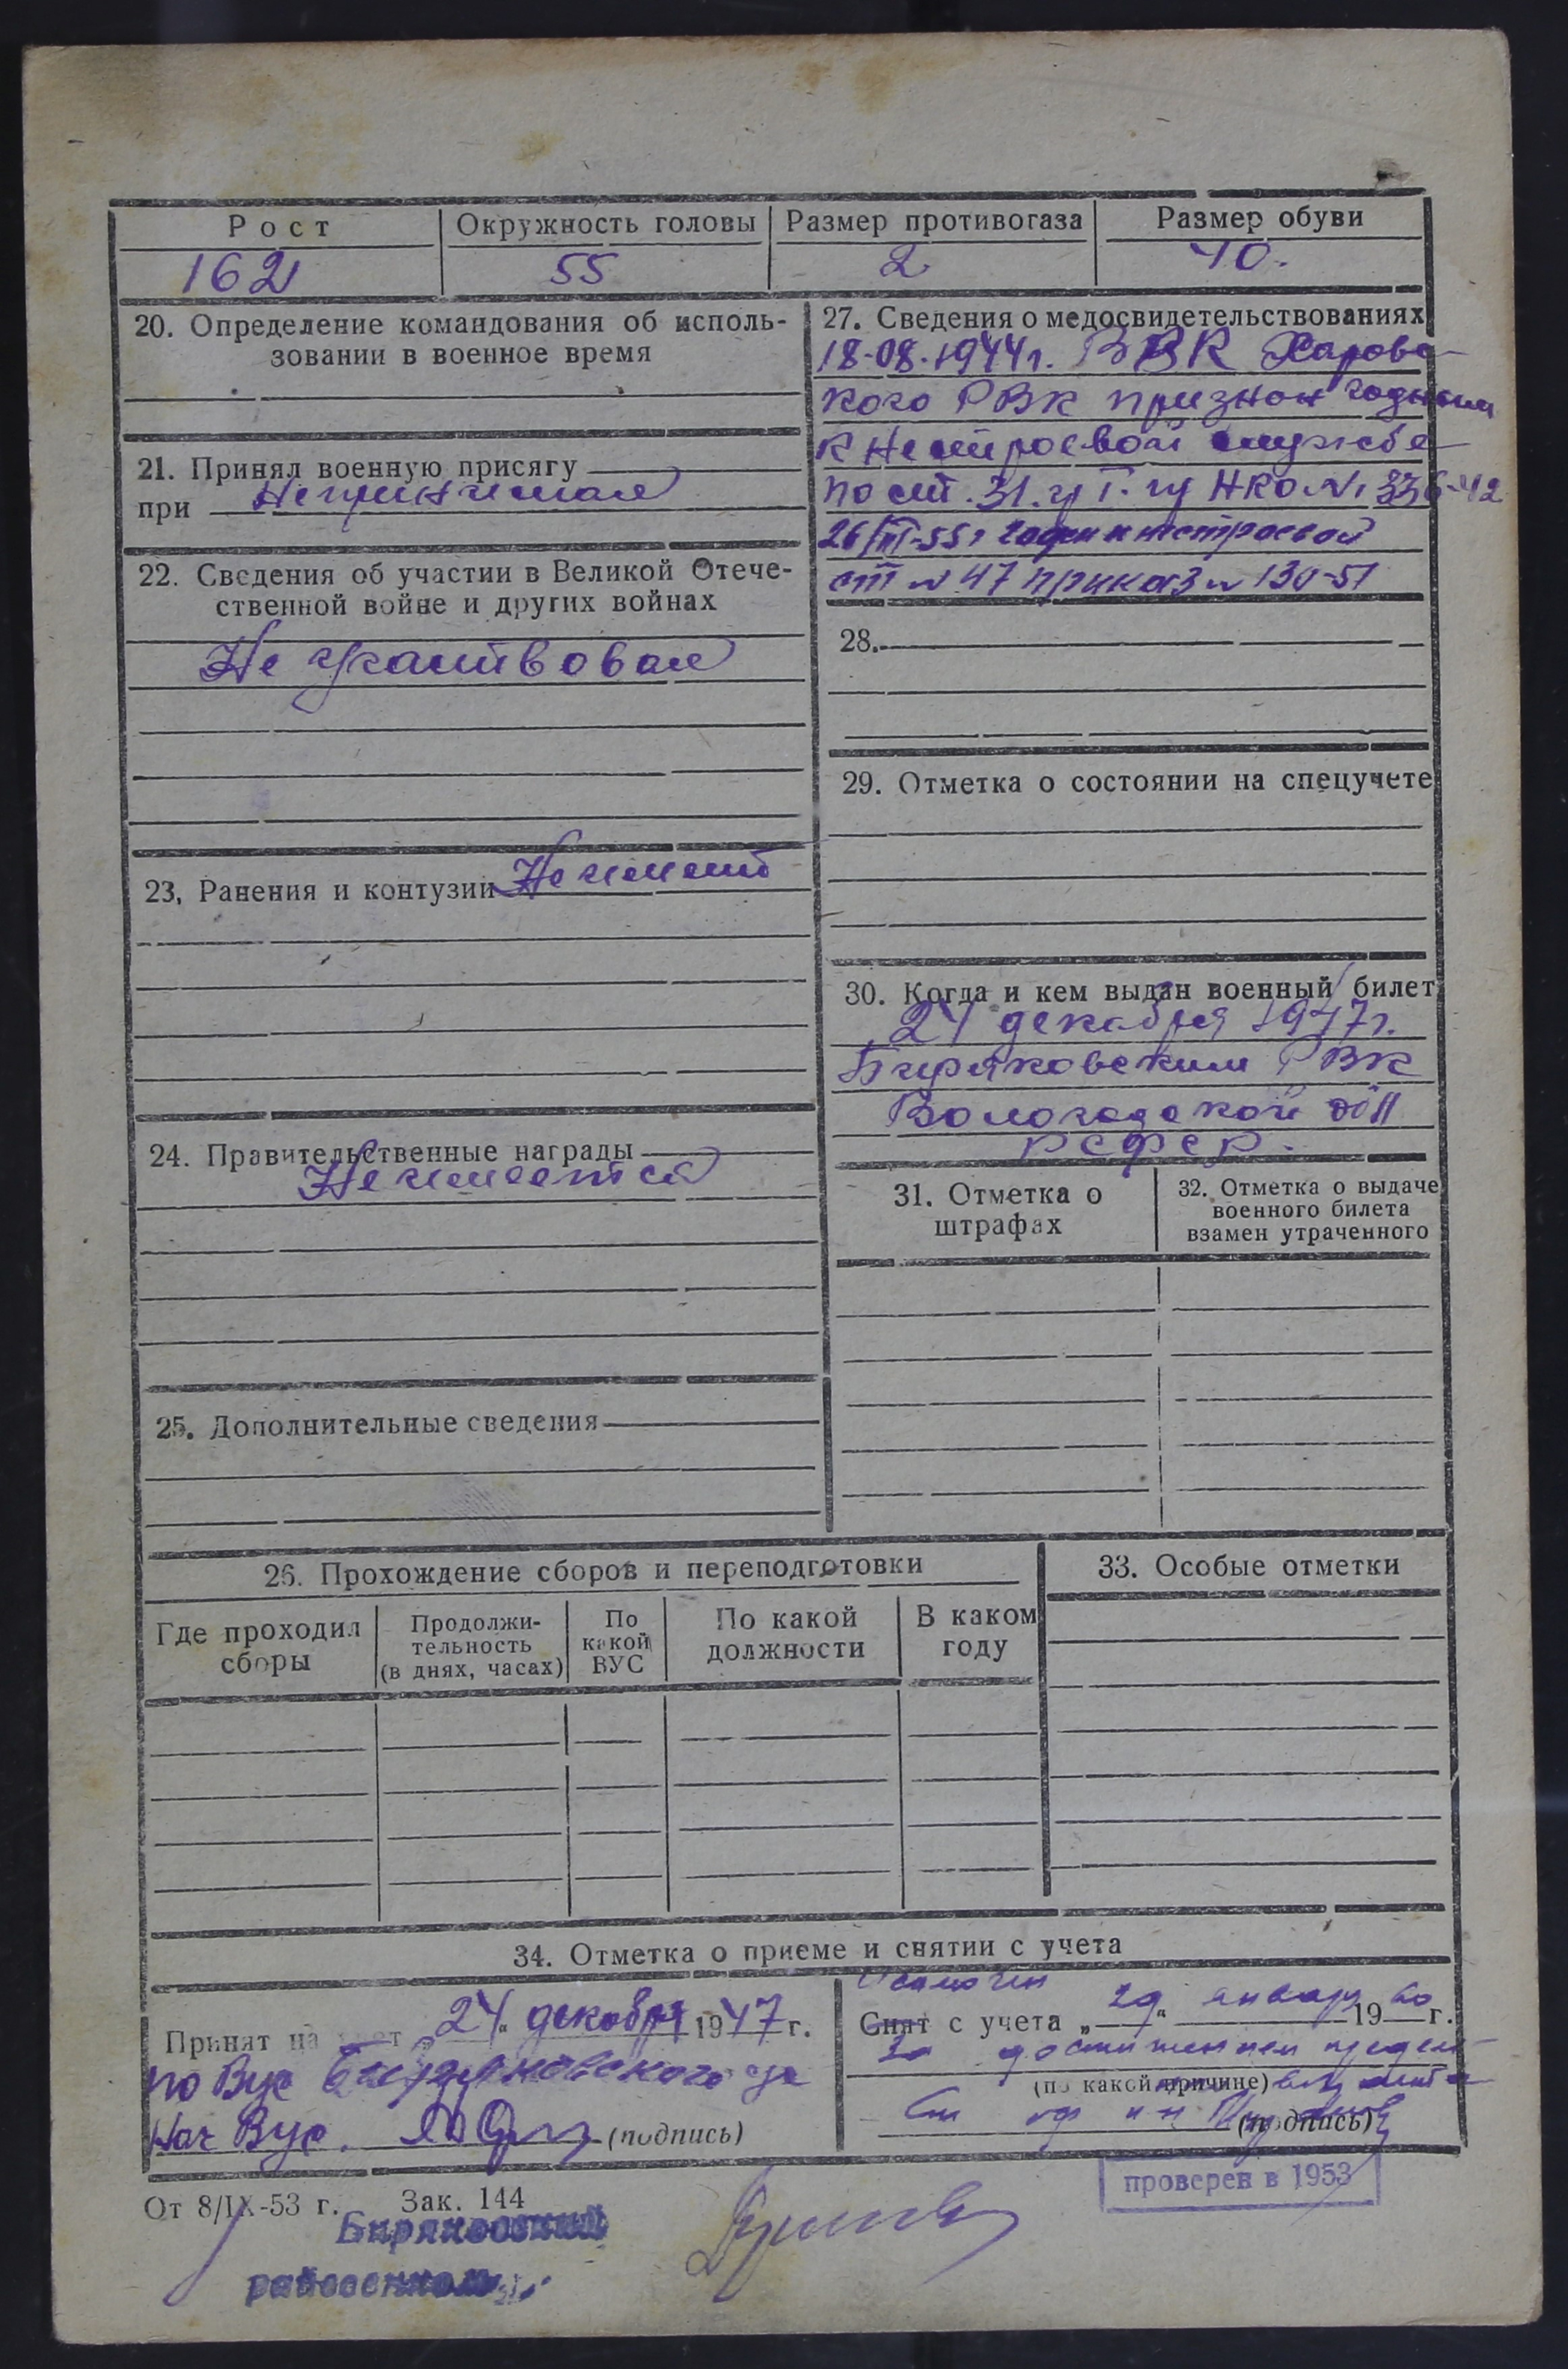 Рост Окружность головы Размер противогаза Размер обуви
162 55 2 40.
20. Определение командования об исполь-
зовании в военное время
21. Принял военную присягу
при Не принимал
22. Сведения об участии в Великой Отече-
ственной войне и других войнах
Не участвовал
23. Ранения и контузии Не имеет
24. Правительственные награды
Не имеется
25. Дополнительные сведения
27. Сведения о медосвидетельствованиях
18-08-1944 г. ВВК Харовс-
кого РВК признан годным
к нестроевой службе
по ст. 31. гр I. пр НКО № 336-42
26/III-55 г годен к нестроевой
ст № 47 приказ № 130-51
28.
29. Отметка о состоянии на спецучете
30. Когда и кем выдан военный билет
24 декабря 1947 г.
Биряковским РВК
Вологодской обл
РСФСР.
31. Отметка о
штрафах
32. Отметка о выдаче
военного билета
взамен утраченного
26. Прохождение сборов и переподготовки
Где проходил
сборы
Продолжи-
тельность
(в днях, часах)
По
какой
ВУС
По какой
должности
В каком
году
33. Особые отметки
34. Отметка о приеме и снятии с учета
Принят на учет „24" декабря 1947 г.
по Вус Биряковского
Нач Вус. (подпись)
Исключен
Снят с учета „29" январь 1960 г.
за достижением предель-
(по какой причине) возраста
(подпись)
проверен в 1953
От 8/IX-53 г. Зак. 144
Биряковский
райвоенкомат